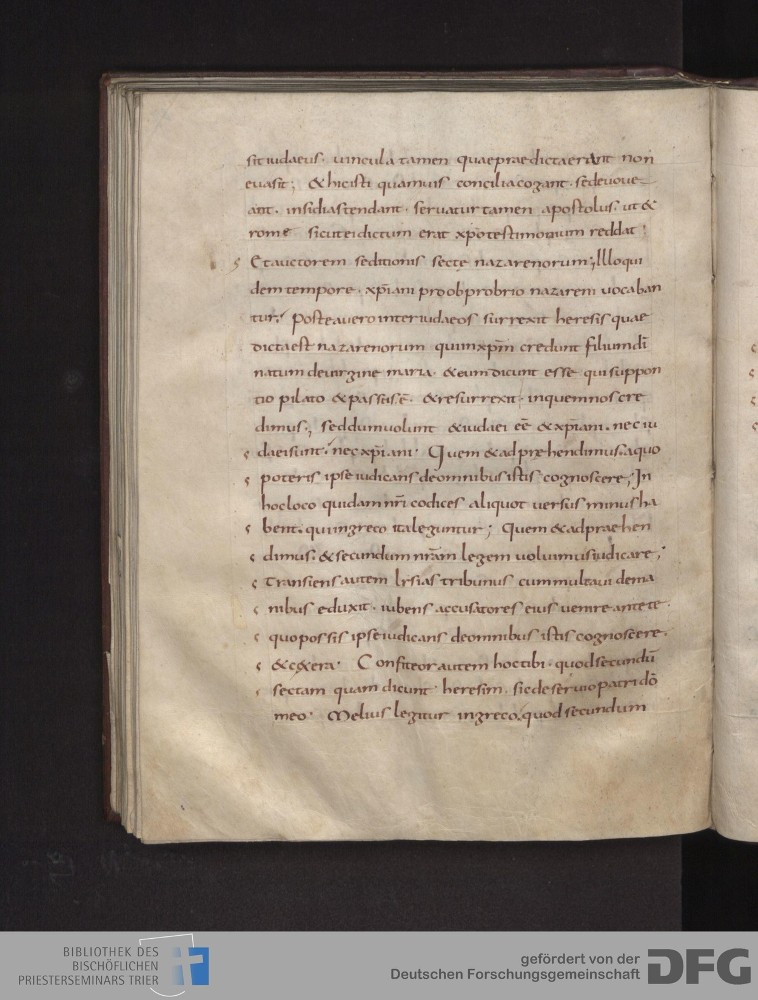 sit iudaeus. uincula tamen quae praedicta erant non
euasit; & hic isti quamuis concilia cogant. sed euoue
ant. insidias tendant. seruatur tamen apostolus. ut &
rome sicut ei dictum erat xpo testimonium reddat;
Et auctorem seditionis secte nazarenorum; Illo qui
dem tempore. xpiani pro obprobrio nazareni uocaban
tur; Postea uero inter iudaeos surrexit heresis quae
dicta est nazarenorum qui in xpm credunt filium di
natum de uirgine maria. & eum dicunt esse qui sub pon
tio pilato & passus ē. & resurrexit. in quem nos cre
dimus; sed dum uolunt & iudaei eē & xpiani. nec iu
daei sunt. nec xpiani. Quem & adpraehendimus. a quo
poteris ipse iudicans de omnibus istis cognoscere; In
hoc loco quidam nri codices aliquot uersus minus ha
bent. qui in greco ita leguntur; Quem & adpraehen
dimus. & secundum nram legem uoluimus iudicare;
Transiens autem lysias tribunus cum multa ui de ma
nibus eduxit. iubens accusatores eius uenire ante te.
quo possis ipse iudicans de omnibus istis cognoscere.
& c&era. Confiteor autem hoc tibi. quod secundū
sectam quam dicunt heresim. sic deseruio patri dō
meo. Melius legitur in greco. quod secundum
BIBLIOTHEK DES
BISCHÖFLICHEN
PRIESTERSEMINARS TRIER
gefördert von der
Deutschen Forschungsgemeinschaft
DFG